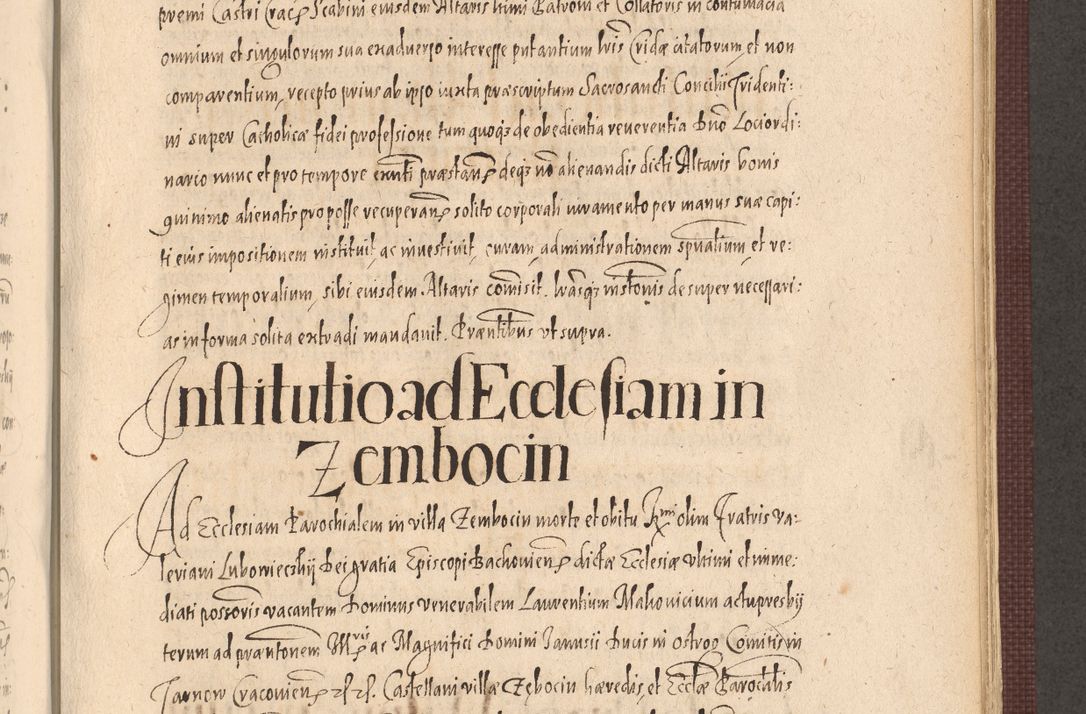 premi Castri Crac? Scabini eiusdem Altaris ltimi Patroni et Collatoris in contumacia
omnium et singulorum sua exadverso interesse putantium lris Cridæ citatorum, et non
comparentium, recepto prius ab ipso iuxta præscriptum Sacrosancti Concilii Tridenti:
ni super Catholicæ fidei professione tum quoqȝ de obedientia reverentia Dno Loci ordi:
nario nunc et pro tempore exnti præstan? deqȝ no alienandis dicti Altaris bonis
quinimo alienatis pro posse recuperan? solito corporali iuramento per manus suæ capi:
ti eius impositionem instituit, ac investivit, curam, administrationem spualium, et re:
gimen temporalium, sibi eiusdem Altaris comisit. lrasqȝ instonis desuper necessari:
as in forma solita extradi mandavit. Præntibus ut supra.
Institutio ad Ecclesiam in
Zembocin
Ad Ecclesiam Parochialem in villa Zembocin morte et obitu Rmi olim Fratris Va:
leriani Lubowieczkij Dei gratia Episcopi Bachovien? dictæ Ecclesiæ ultimi et imme:
diati possoris vacantem Dominus venerabilem Laurentium Makovicium actu presby
terum ad præntonem Mci? ac Magnifici Domini Janusii Ducis in Ostrog Comitis in
Tarnow Cracovien? Castellani villæ Zębocin hæredis, et Ecclæ Parochialis